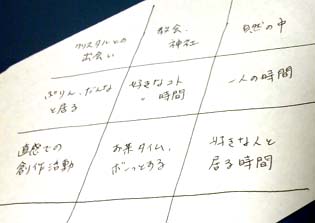 クリスタルとの
出会い
教会、
神社
自然の中
ぷりん、だんな
と居る
好きなコト
〃 時間
一人の時間
直感での
創作活動
お茶タイム、
ボーっとする
好きな人と
居る時間